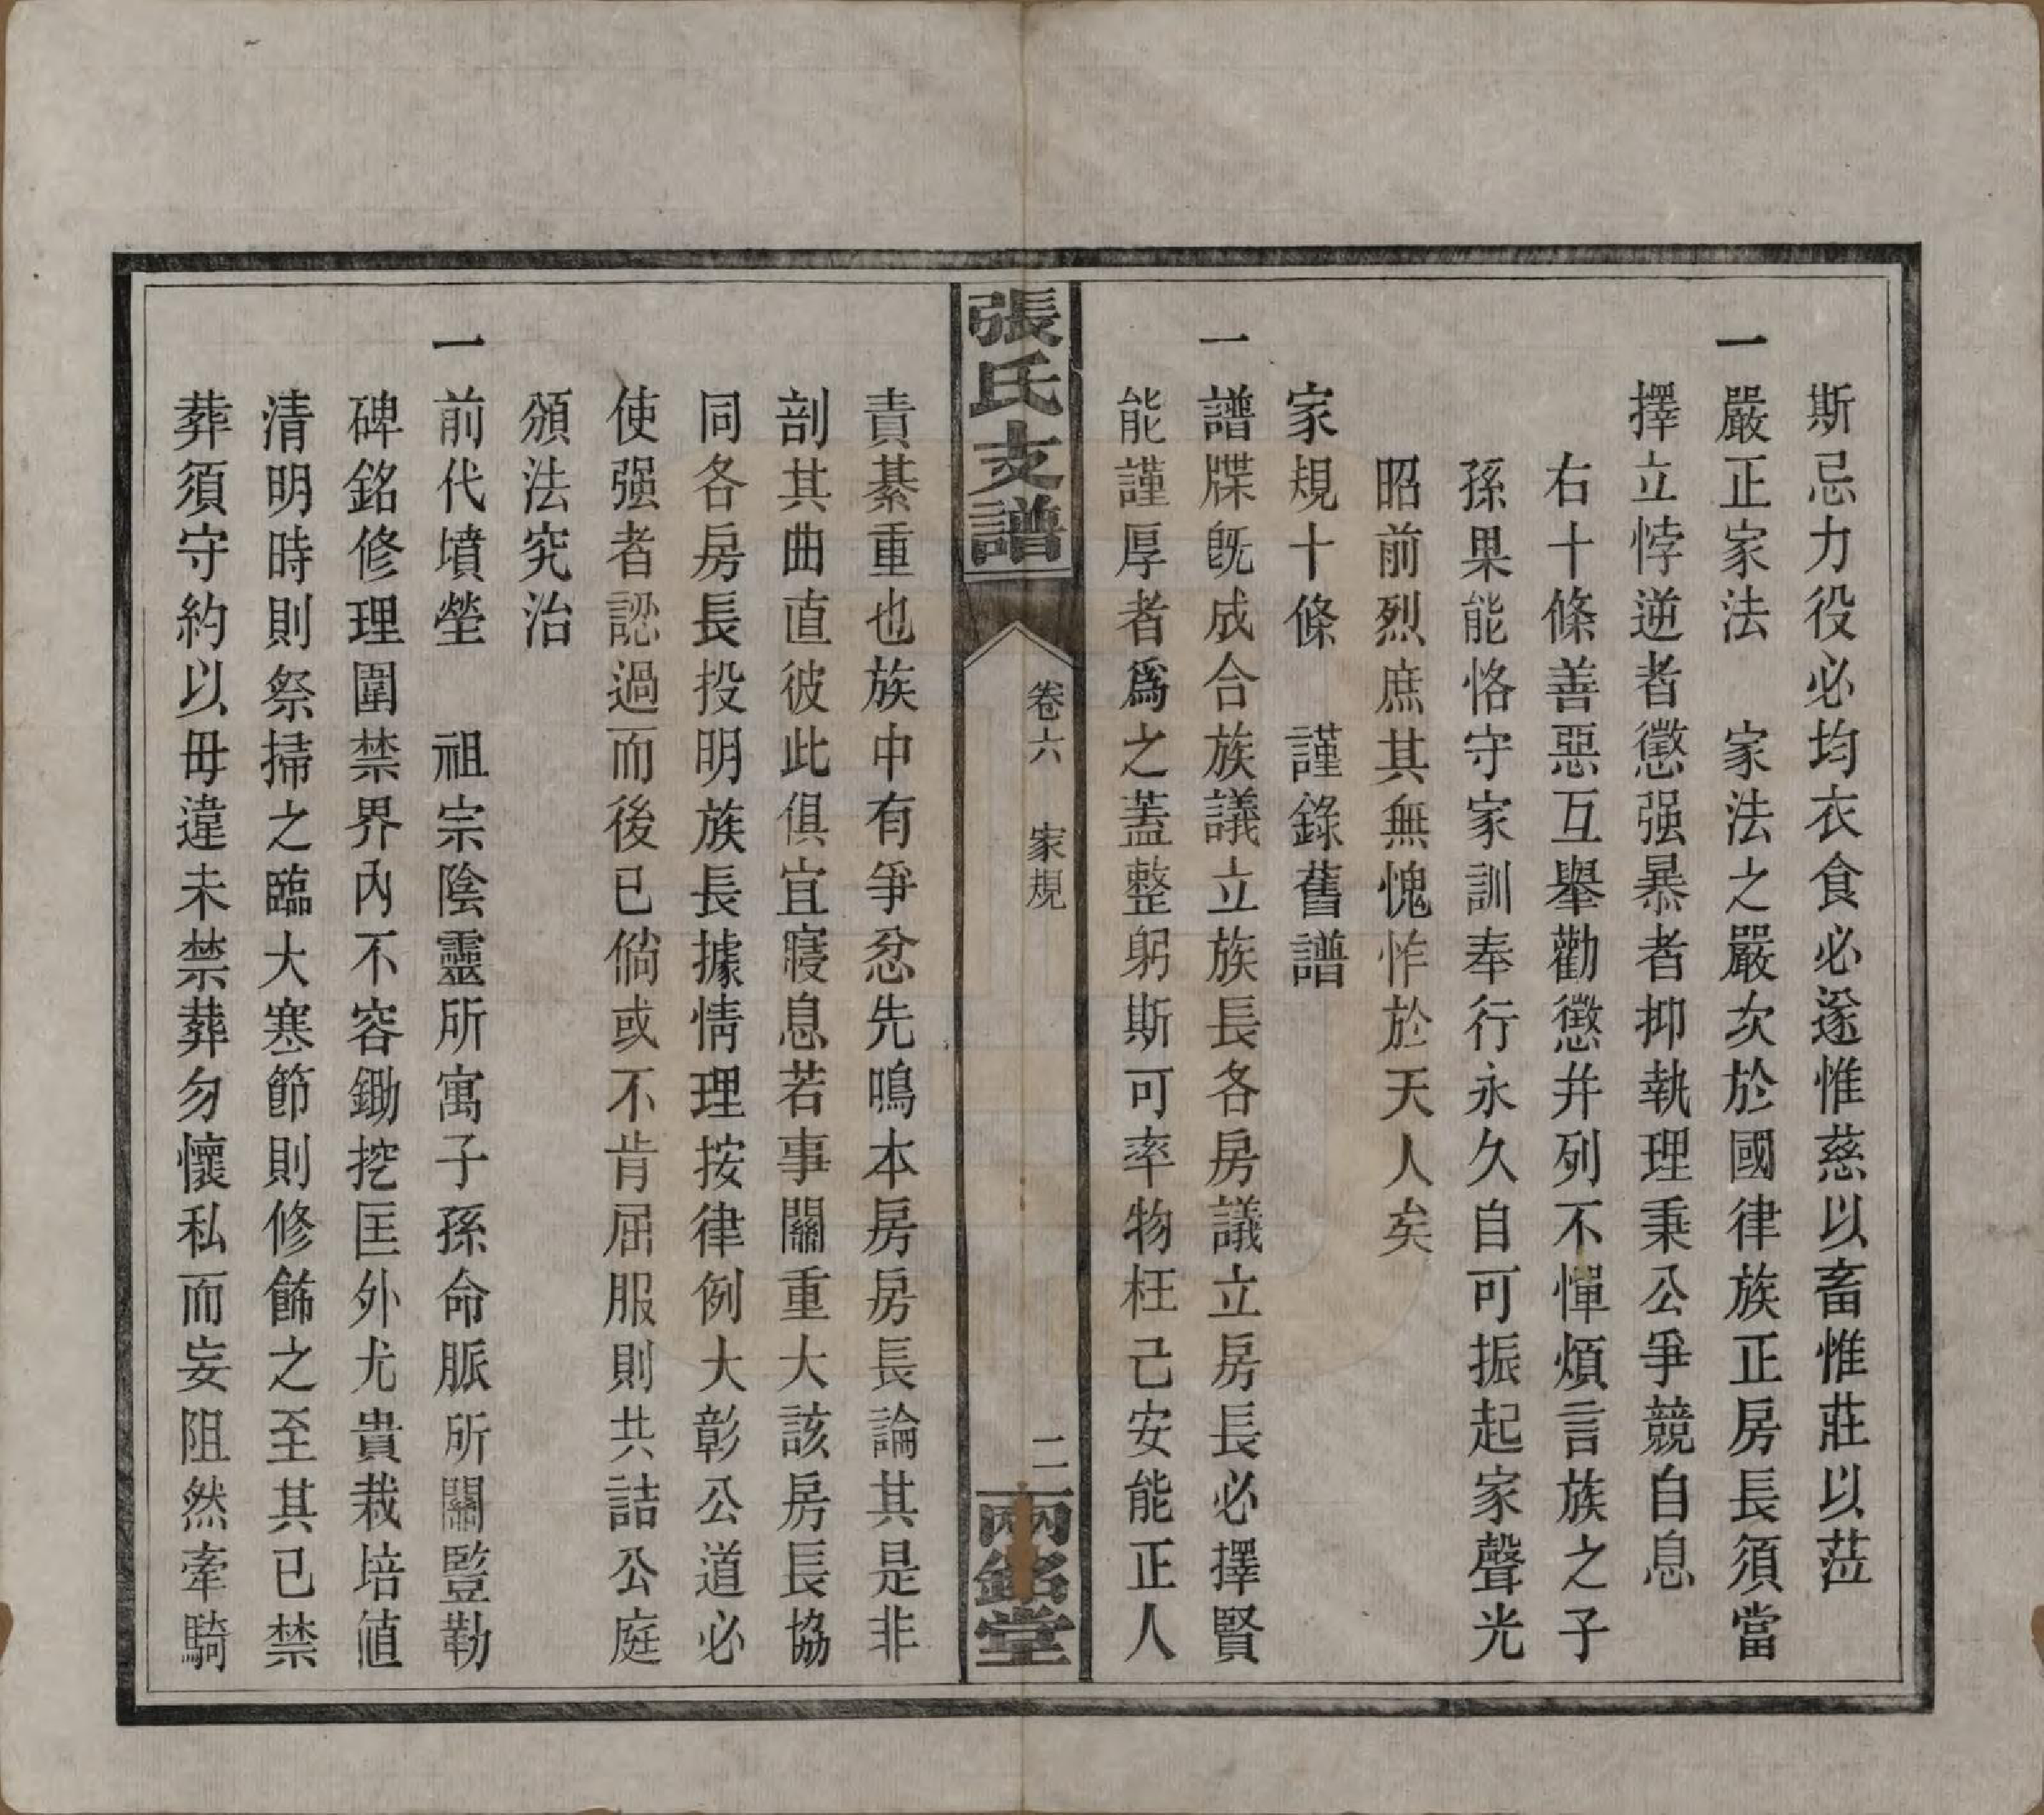 斯忌力役必均衣食必遂惟慈以畜惟莊以蒞
一嚴正家法　家法之嚴次於國律族正房長須當
擇立悖逆者懲强暴者抑執理秉公爭競自息
右十條善惡互舉勸懲并列不憚煩言族之子
孫果能恪守家訓奉行永久自可振起家聲光
昭前烈庶其無愧怍於天人矣
家規十條　謹錄舊譜
一譜牒旣成合族議立族長各房議立房長必擇賢
能謹厚者爲之蓋整躬斯可率物枉己安能正人
張氏支譜
卷六　家規
二
兩銘堂
責綦重也族中有爭忿先鳴本房房長論其是非
剖其曲直彼此俱宜寢息若事關重大該房長協
同各房長投明族長據情理按律例大彰公道必
使强者認過而後已倘或不肯屈服則共詰公庭
頒法究治
一前代墳塋　祖宗陰靈所寓子孫命脈所關豎勒
碑銘修理圍禁界內不容鋤挖匡外尤貴栽培値
清明時則祭掃之臨大寒節則修飾之至其已禁
葬須守約以毋違未禁葬勿懷私而妄阻然牽騎